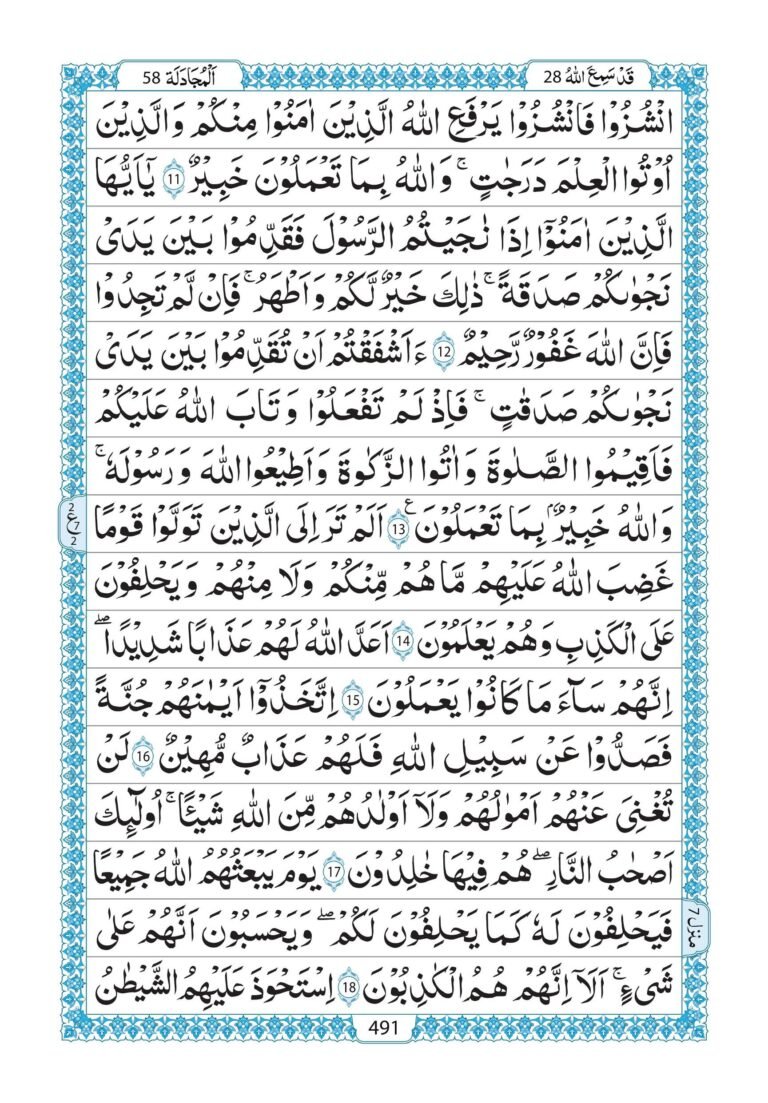 قَدْ سَمِعَ اللهُ 28
اَلْمُجَادَلَة 58
انْشُزُوْا فَانْشُزُوْا يَرْفَعِ اللهُ الَّذِيْنَ اٰمَنُوْا مِنْكُمْ وَالَّذِيْنَ
اُوْتُوا الْعِلْمَ دَرَجٰتٍ ۚ وَاللهُ بِمَا تَعْمَلُوْنَ خَبِيْرٌ 11 يٰٓاَيُّهَا
الَّذِيْنَ اٰمَنُوْٓا اِذَا نٰجَيْتُمُ الرَّسُوْلَ فَقَدِّمُوْا بَيْنَ يَدَىْ
نَجْوٰىكُمْ صَدَقَةً ۚ ذٰلِكَ خَيْرٌ لَّكُمْ وَاَطْهَرُ ۚ فَاِنْ لَّمْ تَجِدُوْا
فَاِنَّ اللهَ غَفُوْرٌ رَّحِيْمٌ 12 ءَاَشْفَقْتُمْ اَنْ تُقَدِّمُوْا بَيْنَ يَدَىْ
نَجْوٰىكُمْ صَدَقٰتٍ ۚ فَاِذْ لَمْ تَفْعَلُوْا وَتَابَ اللهُ عَلَيْكُمْ
فَاَقِيْمُوا الصَّلٰوةَ وَاٰتُوا الزَّكٰوةَ وَاَطِيْعُوا اللهَ وَرَسُوْلَهٗ ۚ
وَاللهُ خَبِيْرٌۢ بِمَا تَعْمَلُوْنَ ع 13 اَلَمْ تَرَ اِلَى الَّذِيْنَ تَوَلَّوْا قَوْمًا
2 ع 7 2
غَضِبَ اللهُ عَلَيْهِمْ مَّا هُمْ مِّنْكُمْ وَلَا مِنْهُمْ وَيَحْلِفُوْنَ
عَلَى الْكَذِبِ وَهُمْ يَعْلَمُوْنَ 14 اَعَدَّ اللهُ لَهُمْ عَذَابًا شَدِيْدًا ۖ
اِنَّهُمْ سَآءَ مَا كَانُوْا يَعْمَلُوْنَ 15 اِتَّخَذُوْٓا اَيْمٰنَهُمْ جُنَّةً
فَصَدُّوْا عَنْ سَبِيْلِ اللهِ فَلَهُمْ عَذَابٌ مُّهِيْنٌ 16 لَنْ
تُغْنِىَ عَنْهُمْ اَمْوٰلُهُمْ وَلَآ اَوْلٰدُهُمْ مِّنَ اللهِ شَيْـًٔا ۚ اُولٰٓئِكَ
اَصْحٰبُ النَّارِ ۖ هُمْ فِيْهَا خٰلِدُوْنَ 17 يَوْمَ يَبْعَثُهُمُ اللهُ جَمِيْعًا
فَيَحْلِفُوْنَ لَهٗ كَمَا يَحْلِفُوْنَ لَكُمْ ۖ وَيَحْسَبُوْنَ اَنَّهُمْ عَلٰى
منزل 7
شَىْءٍ ۚ اَلَآ اِنَّهُمْ هُمُ الْكٰذِبُوْنَ 18 اِسْتَحْوَذَ عَلَيْهِمُ الشَّيْطٰنُ
491